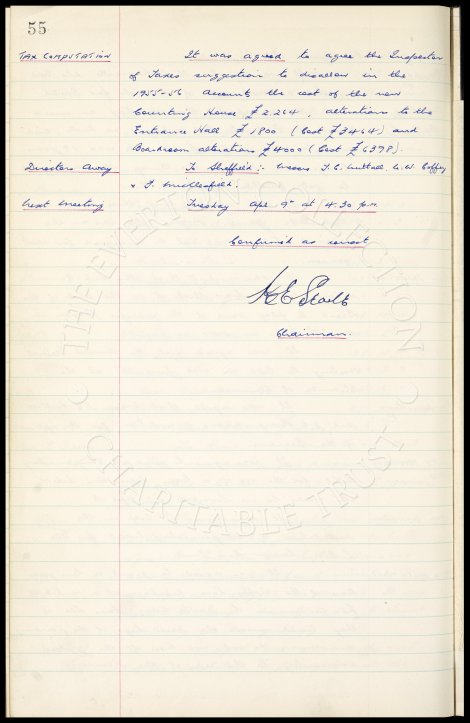 55
TAX COMPUTATION It was agreed to agree the Inspector
of Taxes suggestion to disallow in the
1955-56 accounts the cost of the new
Counting House £2,264, alterations to the
Entrance Hall £1800 (Cost £3464) and
Boardroom alterations £4000 (Cost £6378).
Directors Away To Sheffield:- Messrs T.C. Nuttall, C.W. Coffey
& F. Micklesfield.
Next Meeting Tuesday Apr. 9th at 4.30 p.m.
Confirmed as correct
Chairman.
THE EVERTON COLLECTION
CHARITABLE TRUST